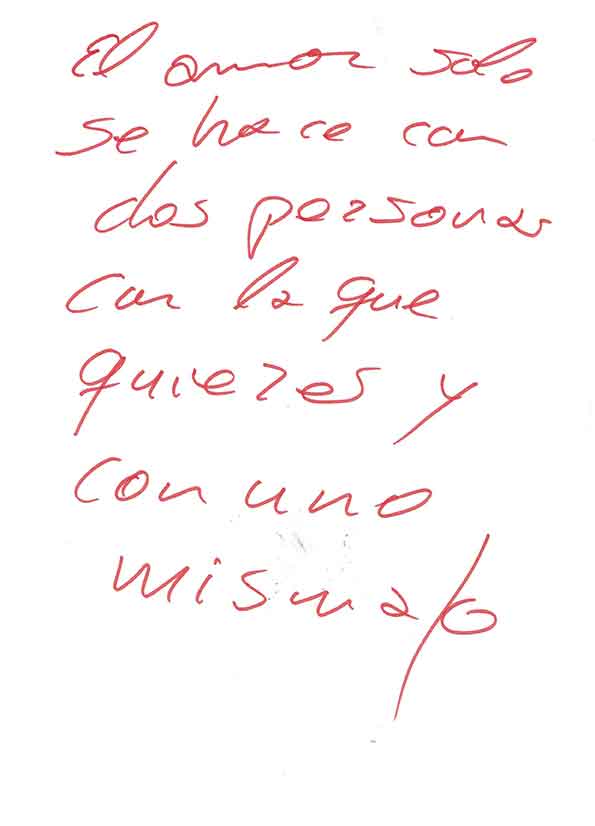 El amor solo
se hace con
dos personas
con la que
quieres y
con uno
misma/o